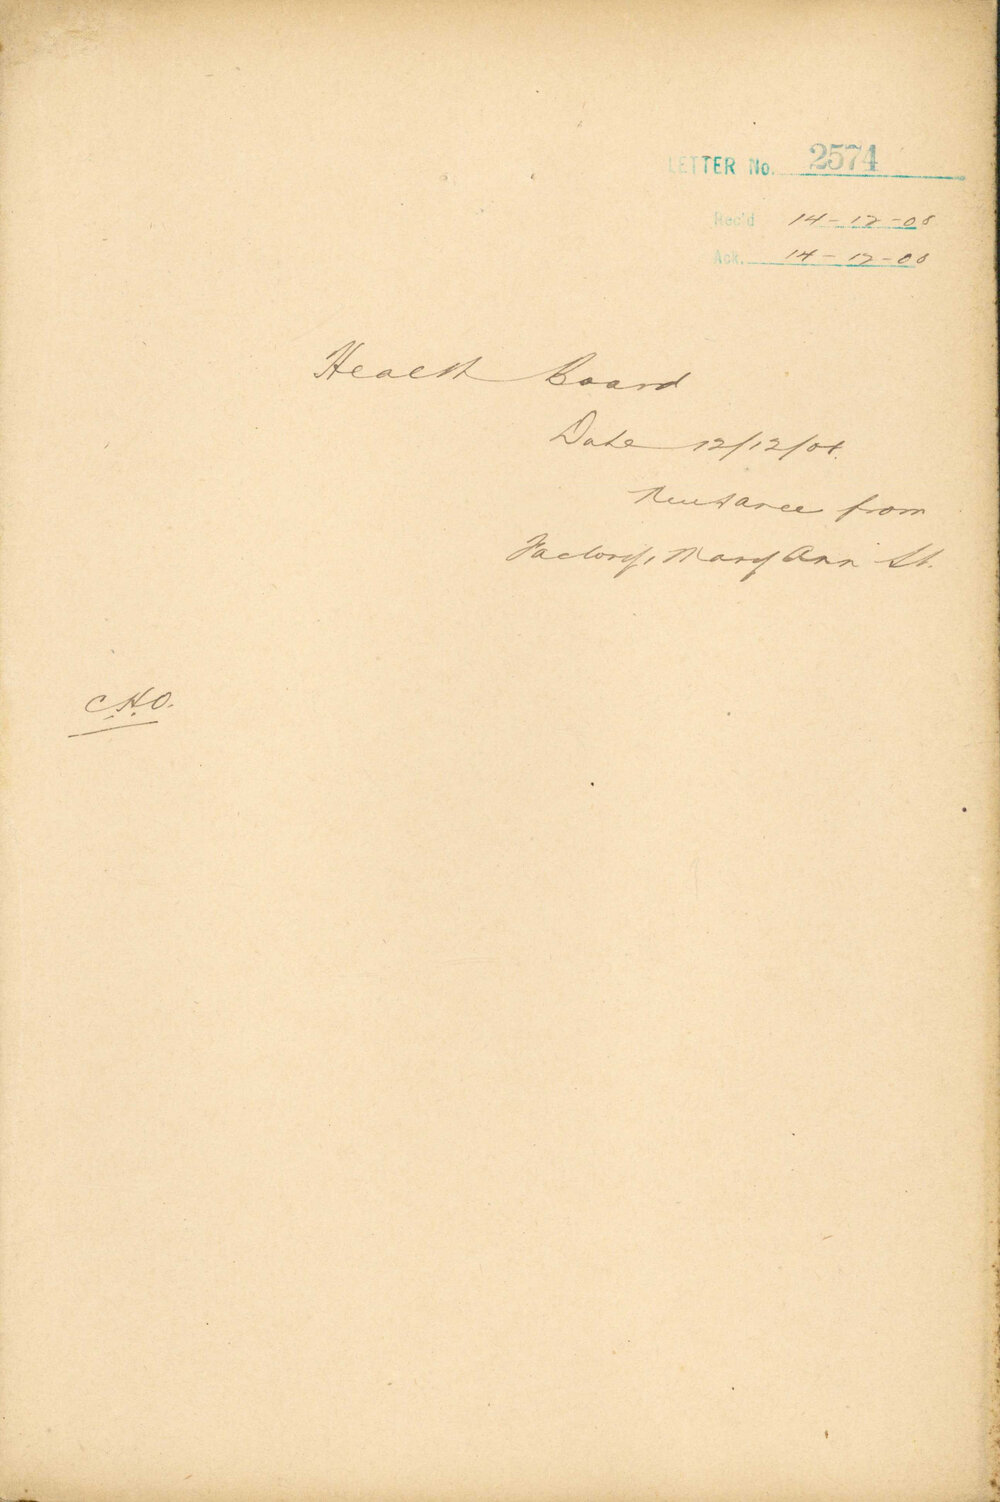 LETTER No. 2574
Rec'd 14-12-08
Ack. 14-12-08
Health Board
Date 12/12/08.
Nuisance from
Factory, Mary Ann St.
C.H.O.